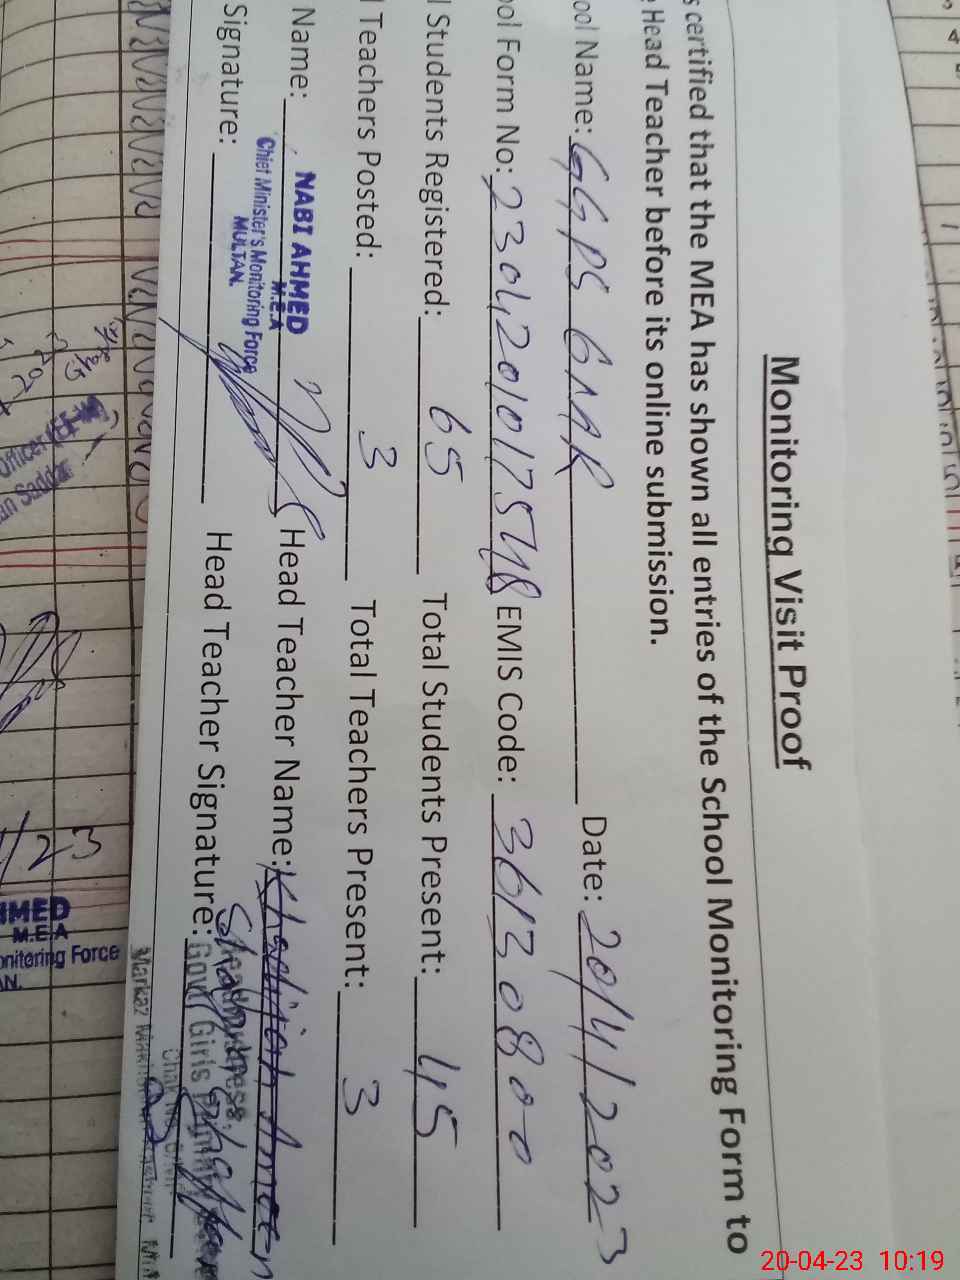 Monitoring Visit Proof
s certified that the MEA has shown all entries of the School Monitoring Form to
Head Teacher before its online submission.
ool Name: GGPS 6AAR Date: 20/4/2023
ool Form No: 2304201017548 EMIS Code: 36130800
l Students Registered: 65 Total Students Present: 45
l Teachers Posted: 3 Total Teachers Present: 3
Name: NABI AHMED Head Teacher Name: Khadijah Ameen
M.E.A
Chief Minister's Monitoring Force
MULTAN.
Signature: Head Teacher Signature:
Headmistress,
Govt Girls
Markaz
Officer
an Saddar
HMED
M.E.A
onitoring Force
AN.
20-04-23 10:19